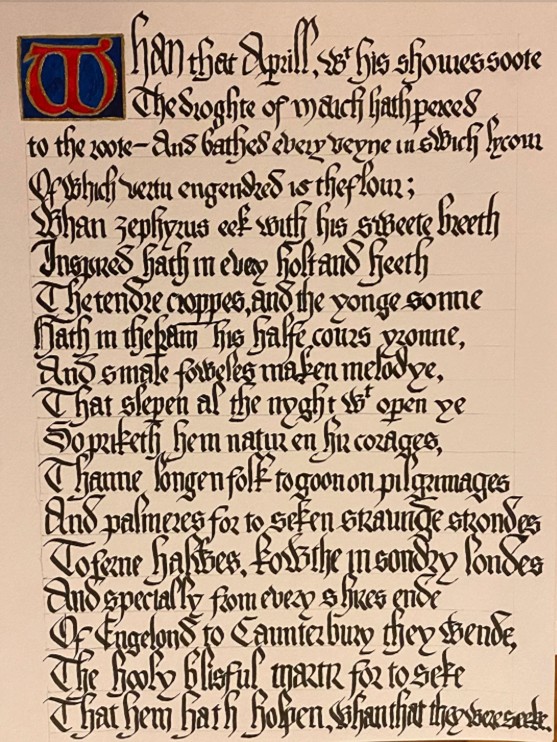 Whan that Aprill, wt his shoures soote
The droghte of march hath perced
to the roote - And bathed every veyne in swich lycour
Of which vertu engendred is the flour;
Whan zephyrus eek with his sweete breeth
Inspired hath in every holt and heeth
The tendre croppes, and the yonge sonne
Hath in the Ram his halfe cours yronne,
And smale foweles maken melodye,
That slepen al the nyght wt open ye
So priketh hem natur en hir corages,
Thanne longen folk to goon on pilgrimages
And palmeres for to seken straunge strondes
To ferne halwes, kowthe in sondry londes
And specially from every shires ende
Of Engelond to Caunterbury they wende,
The hooly blisful martir for to seke
That hem hath holpen, whan that they were seeke.